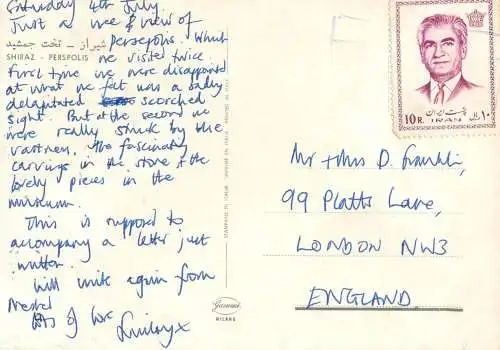 Saturday 4th July.
Just a wee p.c. view of
Persepolis. Which
شیراز - تخت جمشید
SHIRAZ - PERSPOLIS
we visited twice
First time we were disappointed
at what we felt was a badly
delapitated scorched
sight. But at the second we
were really struck by the
vastness, the fascinating
carvings in the stone & the
lovely pieces in the
museum.
This is supposed to
accompany a letter just
written.
Will write again from
Lots of love
x
STAMPATO IN ITALIA
Garami
MILANO
پست ایران
10 R. IRAN ۱۰ ریال
Mr & Mrs D. Franklin,
99 Platts Lane,
LONDON NW3
ENGLAND